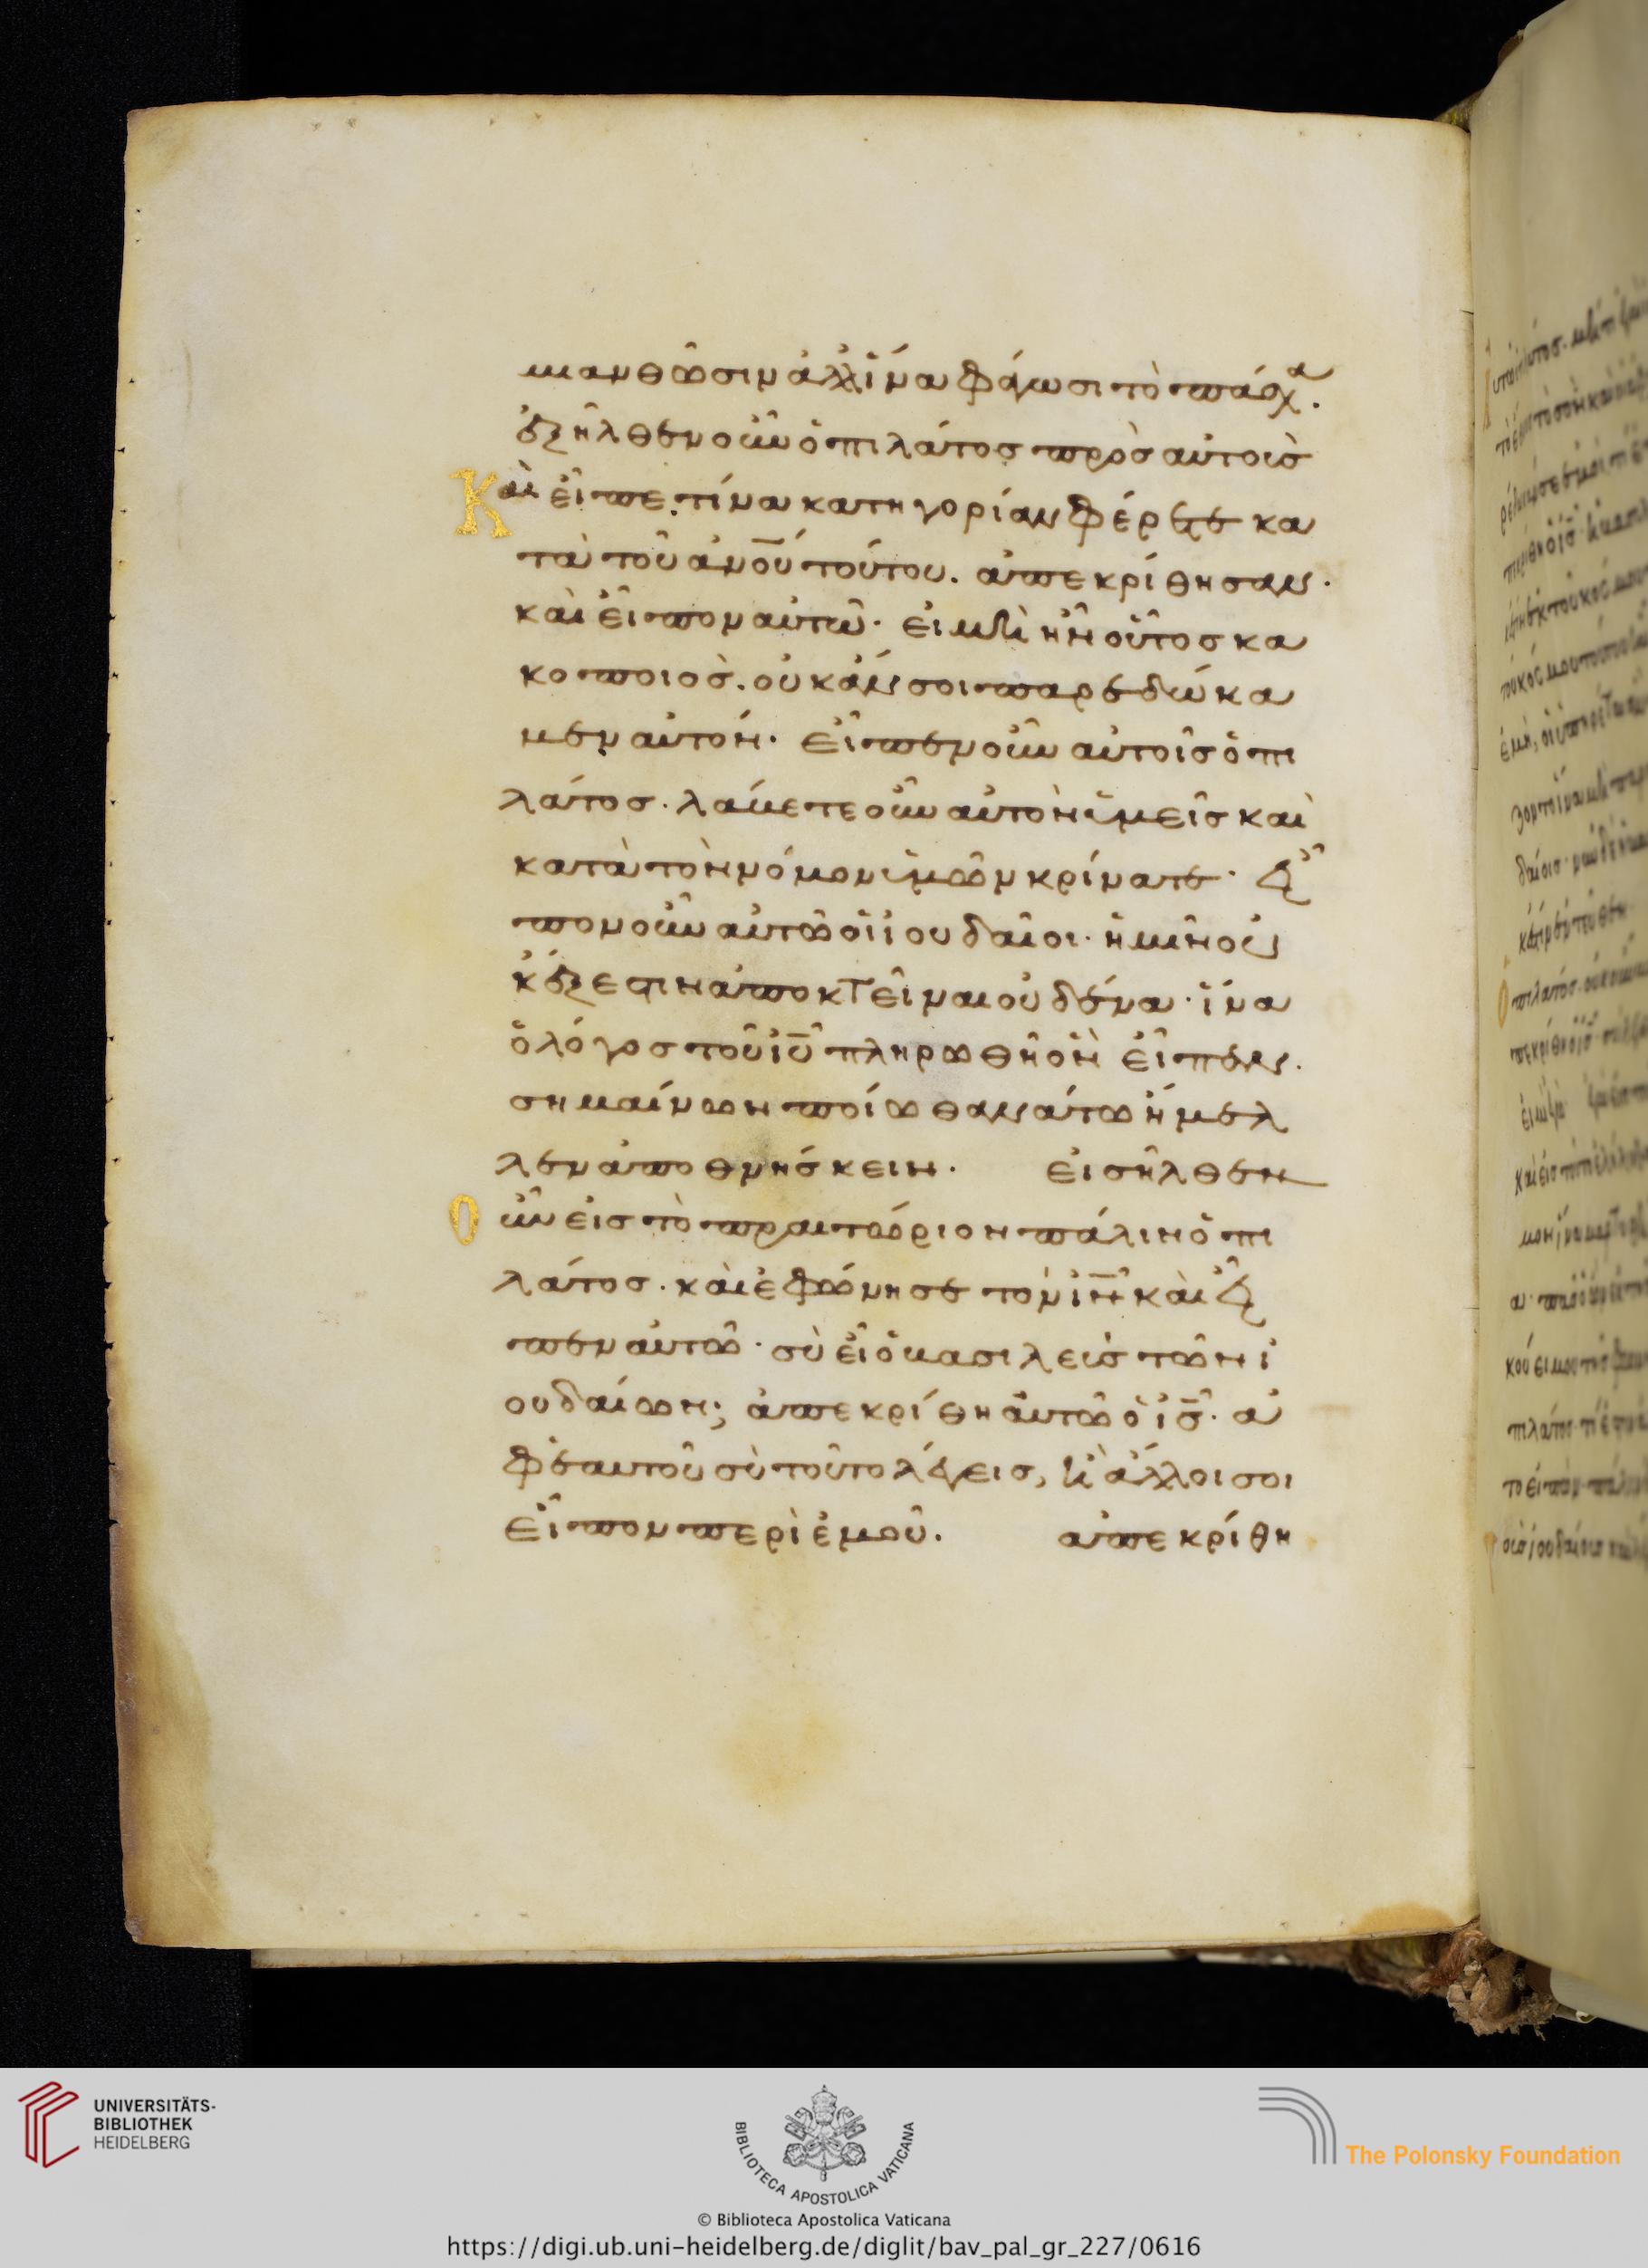 μιανθῶσιν ἀλλ' ἵνα φάγωσι τὸ πάσχα.
ἐξῆλθεν οὖν ὁ πιλάτοσ πρὸσ αὐτοὺσ
Καὶ εἶπε. τίνα κατηγορίαν φέρετε κα
τὰ τοῦ ἀνου τούτου. ἀπεκρίθησαν.
καὶ εἶπον αὐτῶ· εἰ μὴ ἦν οὗτοσ κα
κοποιοσ. οὐκ ἄν σοι παρεδώκα
μεν αὐτόν. εἶπεν οὖν αὐτοῖσ ὁ πι
λάτοσ. λάβετε οὖν αὐτὸν ὑμεῖσ καὶ
κατὰ τὸν νόμον ὑμῶν κρίνατε· εἶ
πον οὖν αὐτῶ οἱ ἰουδαῖοι· ἡμῖν οὐ
κ ἔξεστιν ἀποκτεῖναι οὐδένα· ἵνα
ὁ λόγοσ τοῦ ιυ πληρωθῆ ὃν εἶπεν.
σημαίνων ποίω θανάτω ἤμελ
λεν ἀποθνήσκειν. εἰσῆλθεν
Οὖν εἰσ τὸ πραιτώριον πάλιν ὁ πι
λάτοσ. καὶ ἐφώνησε τὸν ιν καὶ εἶ
πεν αὐτῶ· σὺ εἶ ὁ βασιλεὺσ τῶν ἰ
ουδαίων; ἀπεκρίθη αὐτῶ ὁ ισ· ἀ
φ' ἑαυτοῦ σὺ τοῦτο λέγεισ, ἢ ἄλλοι σοι
εἶπον περὶ ἐμοῦ. ἀπεκρίθη
UNIVERSITÄTS-
BIBLIOTHEK
HEIDELBERG
BIBLIOTECA APOSTOLICA VATICANA
© Biblioteca Apostolica Vaticana
The Polonsky Foundation
https://digi.ub.uni-heidelberg.de/diglit/bav_pal_gr_227/0616